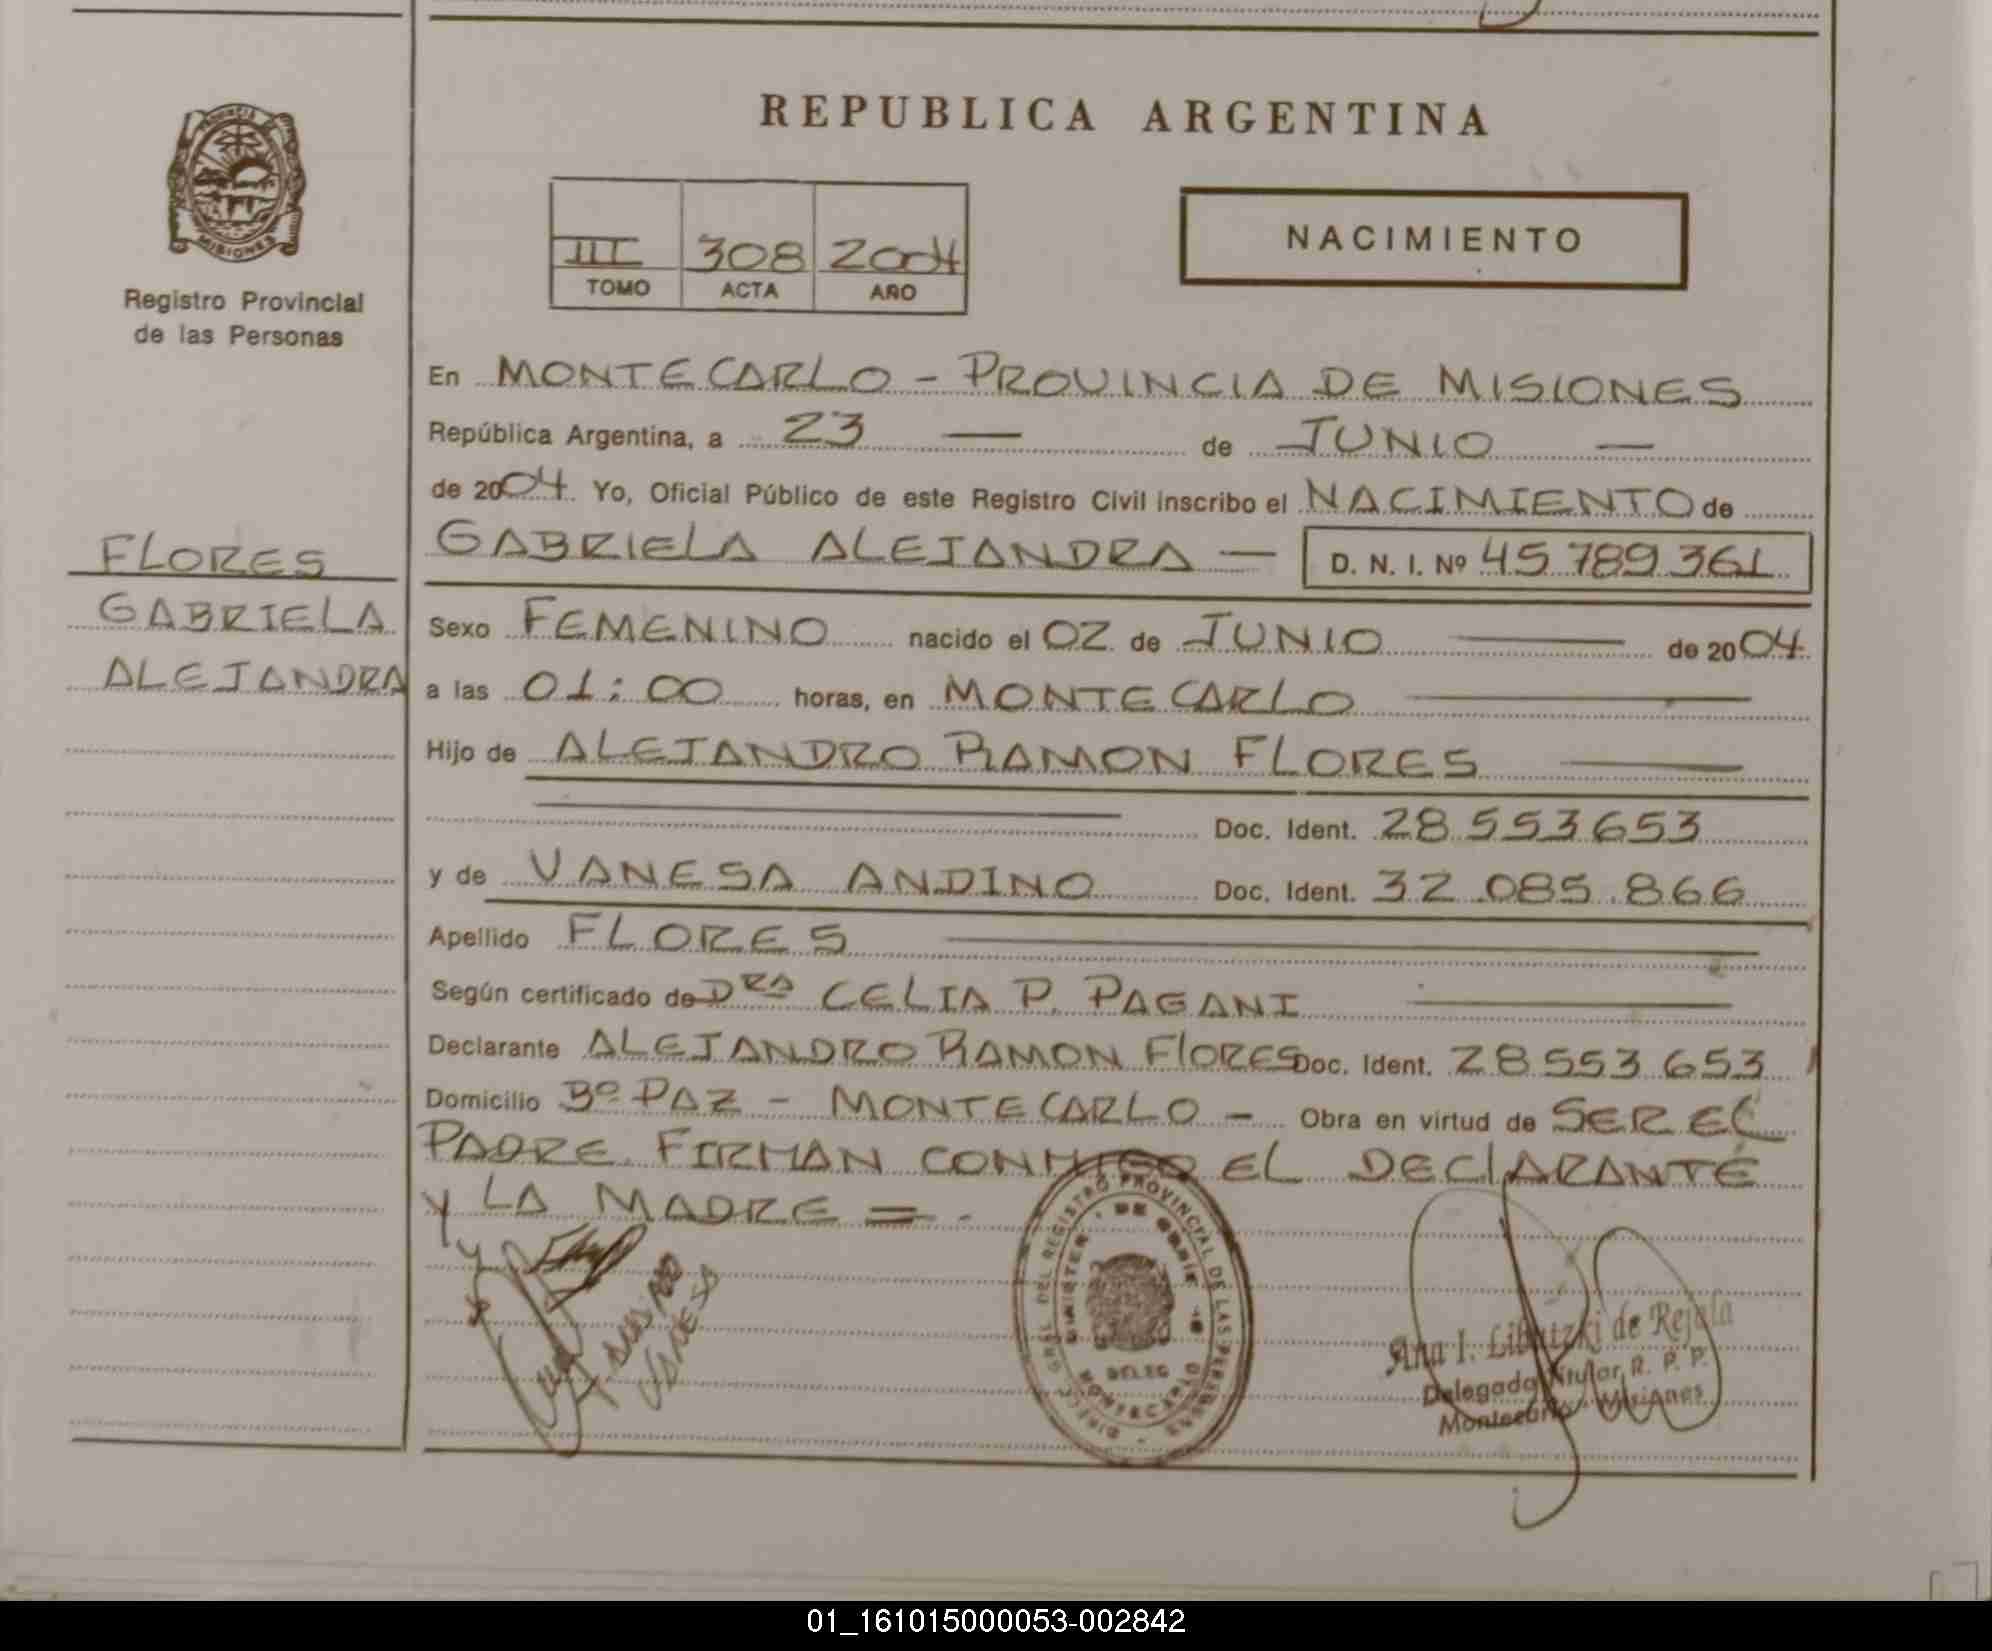 REPUBLICA ARGENTINA
PROVINCIA DE
MISIONES
Registro Provincial
de las Personas
III 308 2004
TOMO ACTA AÑO
NACIMIENTO
En MONTECARLO - PROVINCIA DE MISIONES
República Argentina, a 23 — de JUNIO —
de 2004. Yo, Oficial Público de este Registro Civil inscribo el NACIMIENTO de
GABRIELA ALEJANDRA — D. N. I. Nº 45.789.361
FLORES
GABRIELA
ALEJANDRA
Sexo FEMENINO nacido el 02 de JUNIO — de 2004
a las 01:00 horas, en MONTECARLO —
Hijo de ALEJANDRO RAMON FLORES —
Doc. Ident. 28.553.653
y de VANESA ANDINO Doc. Ident. 32.085.866
Apellido FLORES —
Según certificado de DRA CELIA P. PAGANI —
Declarante ALEJANDRO RAMON FlORES Doc. Ident. 28.553.653
Domicilio Bº PAZ - MONTECARLO - Obra en virtud de SER EL
PADRE FIRMAN CONMIGO EL DECLARANTE
Y LA MADRE =.-
DEL REGISTRO PROVINCIAL DE LAS PERSONAS
DELEG
MONTECARLO
ANDINO
VANESA
Ana I. Libutzki de Rejala
Delegada Titular R. P. P.
Montecarlo - Misiones
01_161015000053-002842